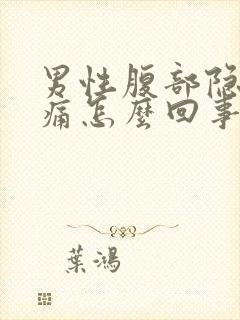 男性腹部隐
痛怎麽回事
葉鴻